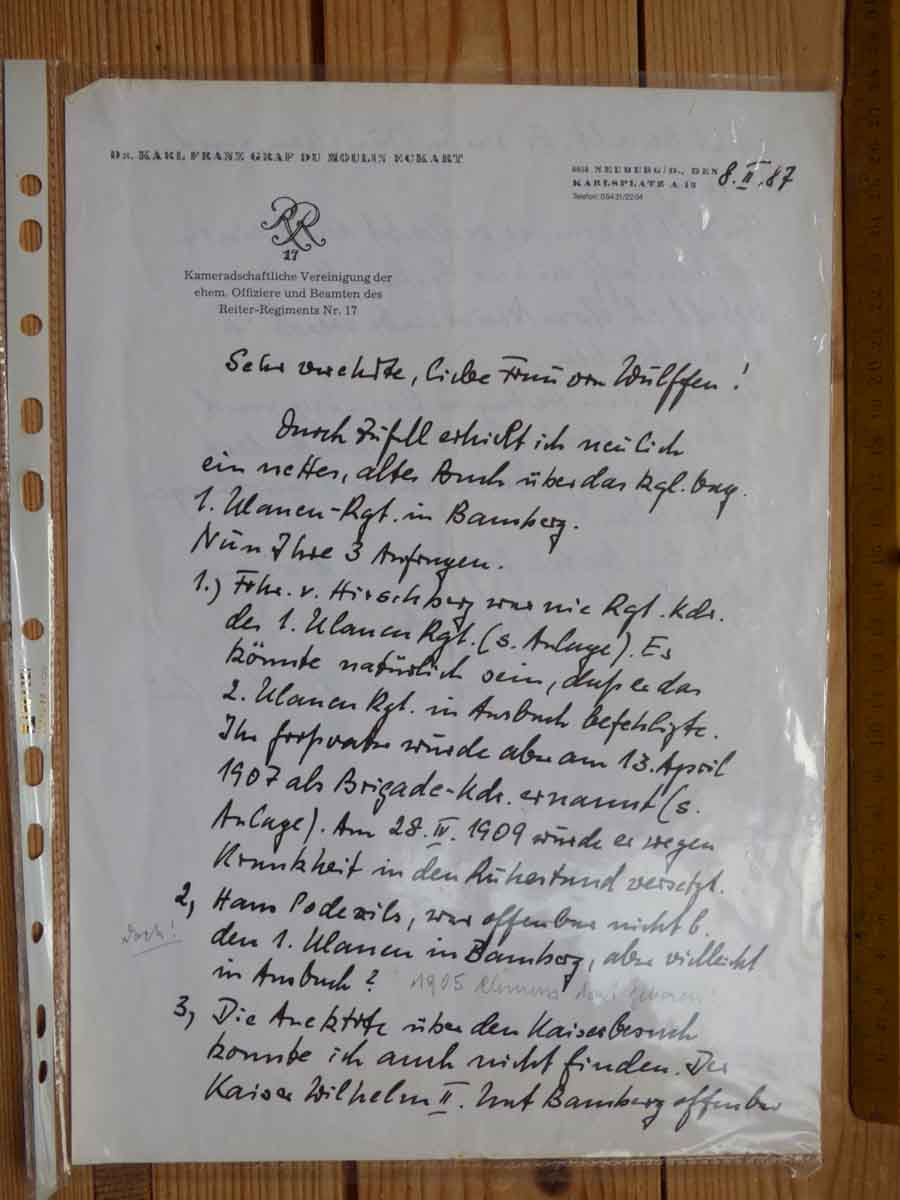 DR. KARL FRANZ GRAF DU MOULIN ECKART
8858 NEUBURG/D., DEN 8.II.87
KARLSPLATZ A 18
Telefon: 08431/2204
RR
17
Kameradschaftliche Vereinigung der
ehem. Offiziere und Beamten des
Reiter-Regiments Nr. 17
Sehr verehrte, liebe Frau von Wulffen!
Durch Zufall erhielt ich neulich
ein nettes, altes Buch über das kgl. bay.
1. Ulanen-Rgt. in Bamberg.
Nun Ihre 3 Anfragen.
1.) Frhr. v. Hirschberg war nie Rgt. Kdr.
des 1. Ulanen Rgt. (s. Anlage). Es
könnte natürlich sein, daß er das
2. Ulanen Rgt. in Ansbach befehligte.
Ihr Großvater wurde aber am 13. April
1907 als Brigade-Kdr. ernannt (s.
Anlage). Am 28.IV.1909 wurde er wegen
Krankheit in den Ruhestand versetzt.
2, Hans Podewils, war offenbar nicht b.
Doch!
den 1. Ulanen in Bamberg, aber vielleicht
in Ansbach? 1905 Clemens dort geboren!
3, Die Anektote über den Kaiserbesuch
konnte ich auch nicht finden. Der
Kaiser Wilhelm II. hat Bamberg offenbar